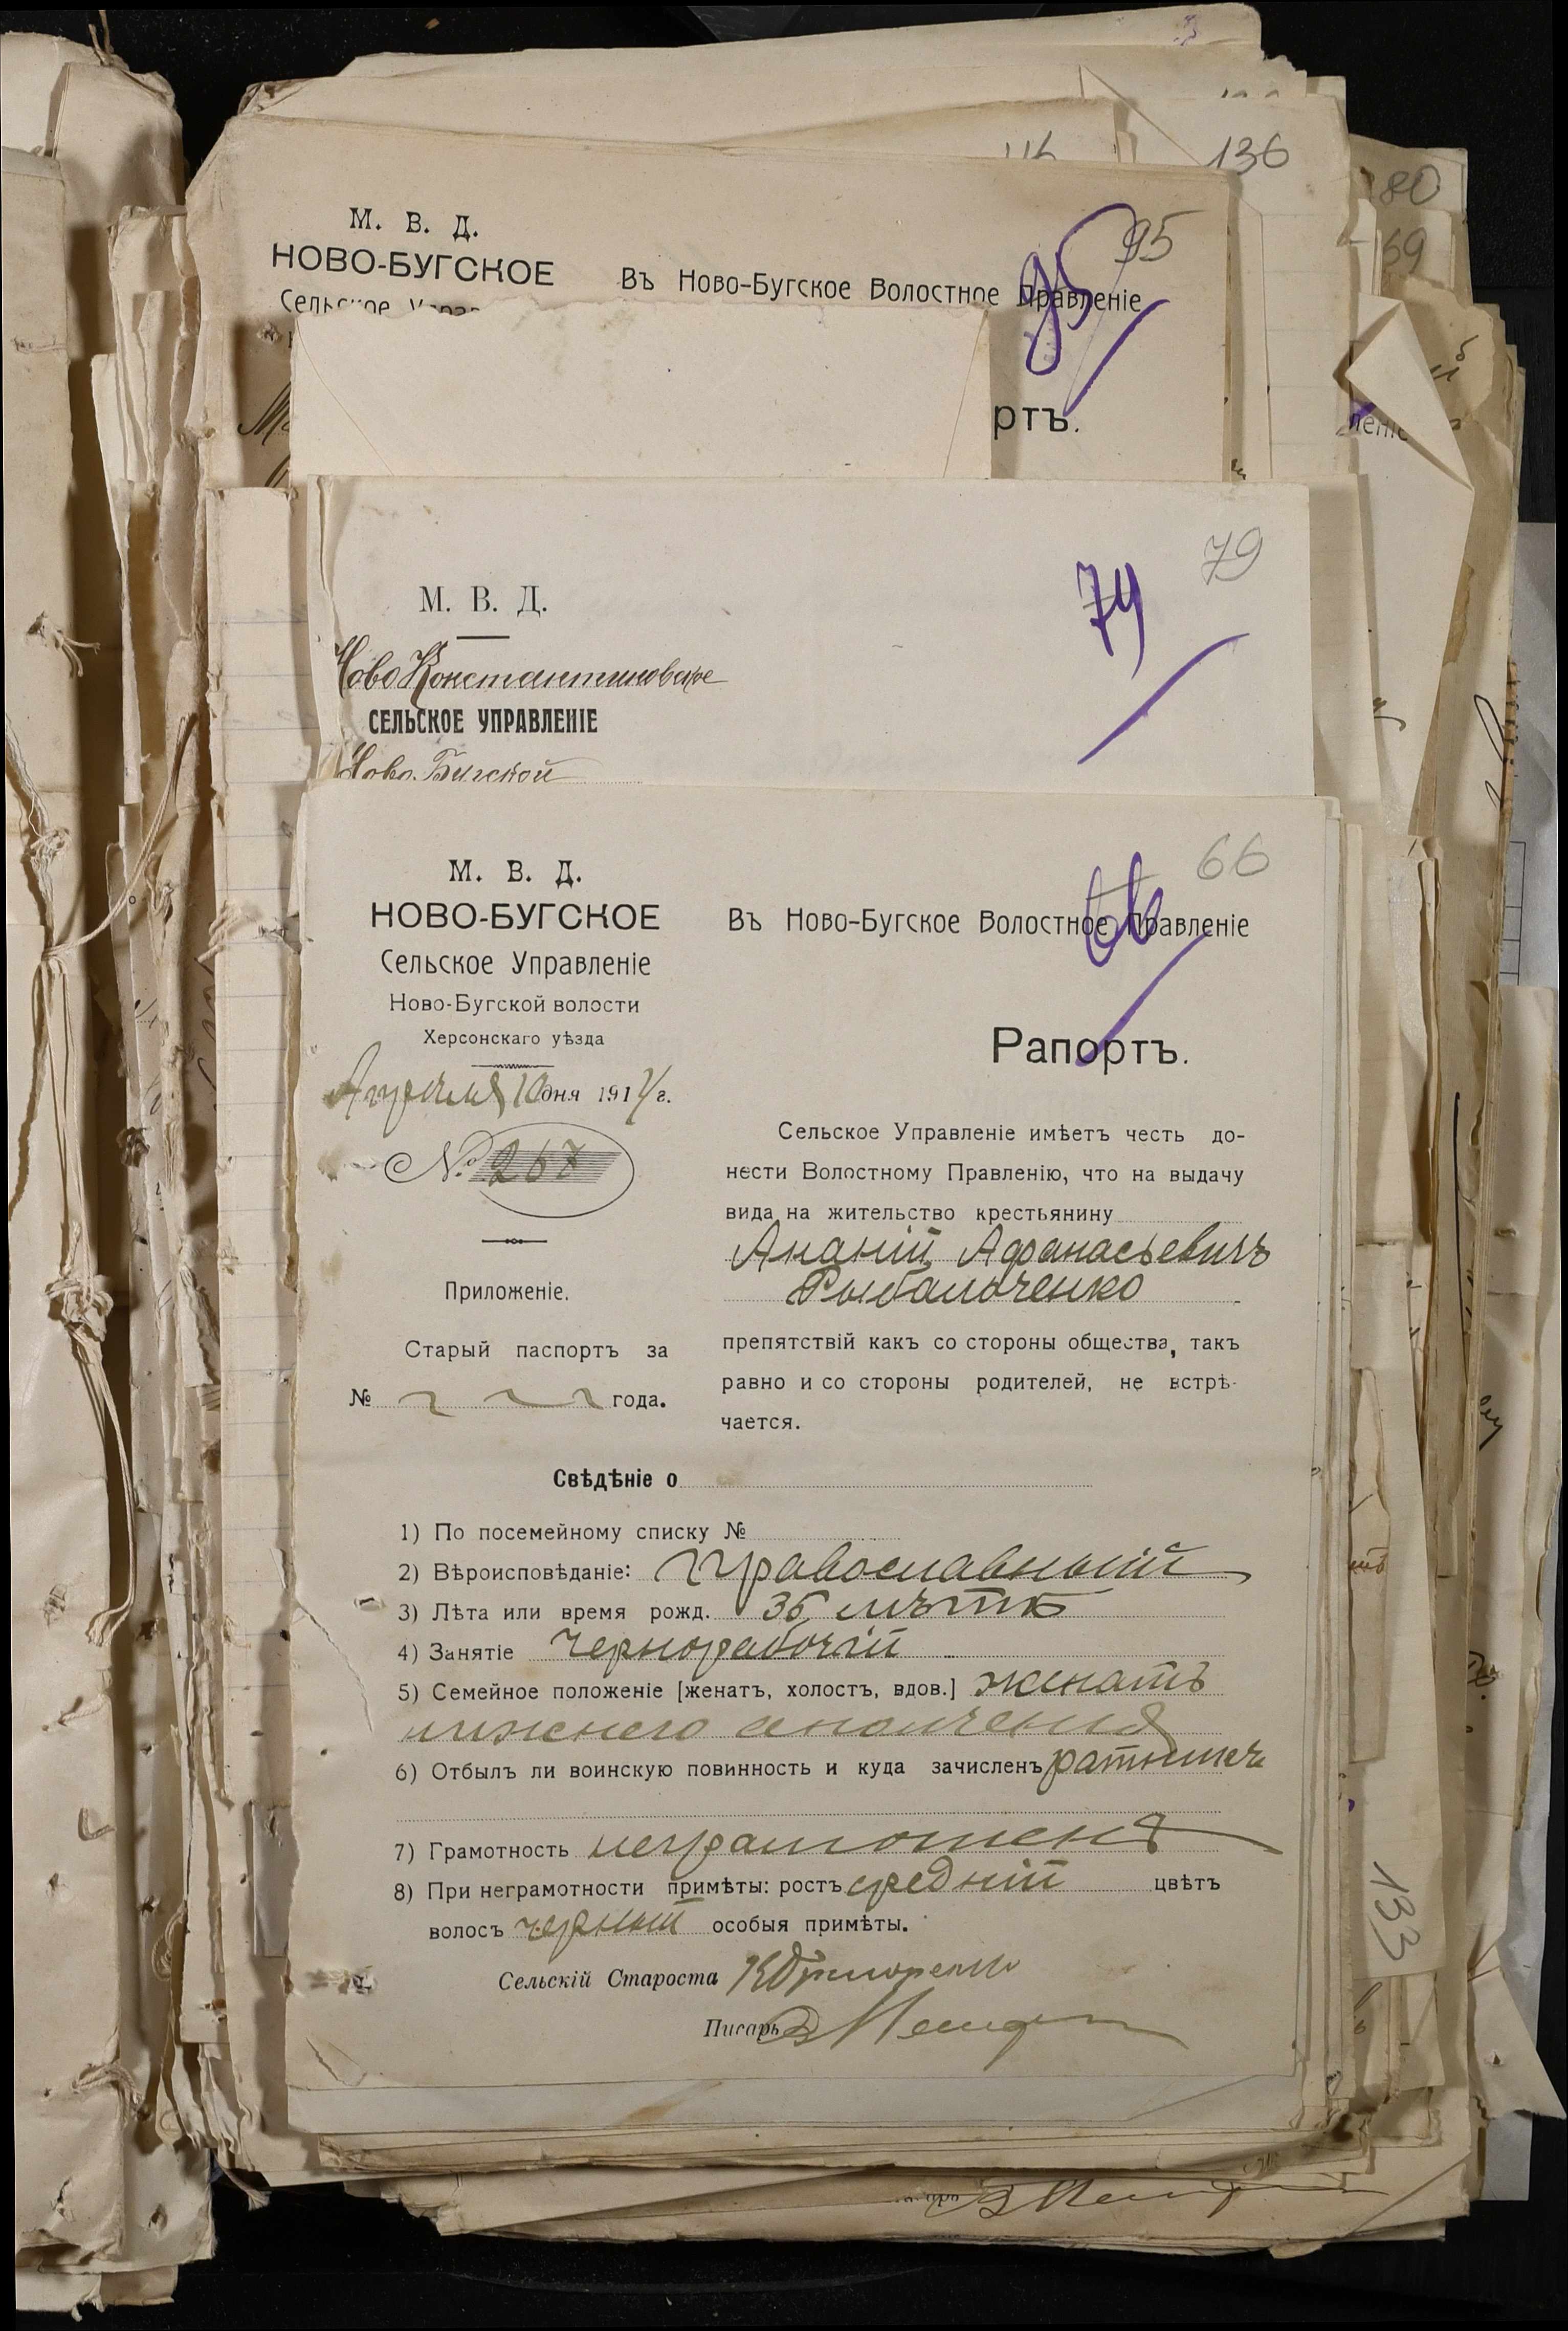 136
80
69
95
95
М. В. Д.
НОВО-БУГСКОЕ
Въ Ново-Бугское Волостное Правленіе
Сельское
ртъ.
79
79
М. В. Д.
Ново Константиновское
СЕЛЬСКОЕ УПРАВЛЕНІЕ
Ново-Бугской
66
66
М. В. Д.
НОВО-БУГСКОЕ
Сельское Управленіе
Ново-Бугской волости
Херсонскаго уѣзда
Апреля 10 дня 1914 г.
№ 267
Приложеніе.
Старый паспортъ за
№ года.
Въ Ново-Бугское Волостное Правленіе
Рапортъ.
Сельское Управленіе имѣетъ честь до-
нести Волостному Правленію, что на выдачу
вида на жительство крестьянину
Ананій Афанасьевичъ
Рыбальченко
препятствій какъ со стороны общества, такъ
равно и со стороны родителей, не встрѣ-
чается.
Свѣдѣніе о
1) По посемейному списку №
2) Вѣроисповѣданіе: православный
3) Лѣта или время рожд. 36 лѣтъ
4) Занятіе чернорабочій
5) Семейное положеніе [женатъ, холостъ, вдов.] женатъ
6) Отбылъ ли воинскую повинность и куда зачисленъ ратникъ
7) Грамотность неграмотенъ
8) При неграмотности примѣты: ростъ средній цвѣтъ
волосъ черный особыя примѣты.
Сельскій Староста
Писарь
133